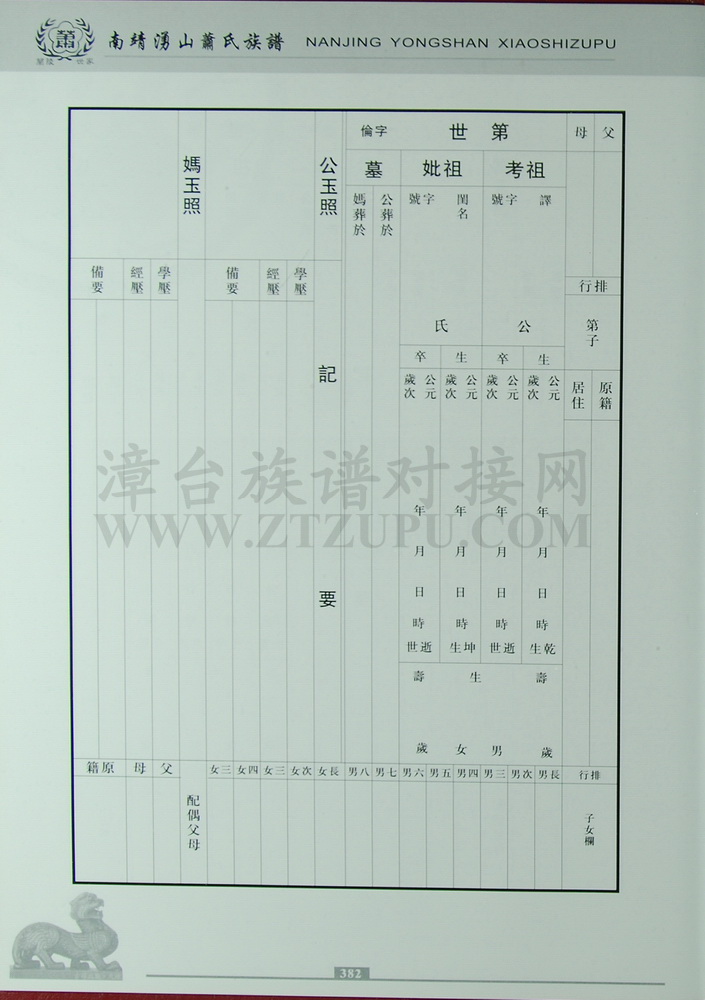 蘭陵 世家
南靖湧山蕭氏族譜 NANJING YONGSHAN XIAOSHIZUPU
父
母
排行
第子
原籍
居住
第 世 字倫
祖考
祖妣
墓
譯
字號
公
閨名
字號
氏
公葬於
媽葬於
生
卒
生
卒
公元
歲次
公元
歲次
公元
歲次
公元
歲次
年月日時
年月日時
年月日時
年月日時
乾生
逝世
坤生
逝世
壽 歲
生 男 女
壽 歲
公玉照
記要
學歷
經歷
備要
媽玉照
學歷
經歷
備要
排行
子女欄
長男
次男
三男
四男
五男
六男
七男
八男
長女
次女
三女
四女
三女
配偶父母
父
母
原籍
漳台族谱对接网
WWW.ZTZUPU.COM
382